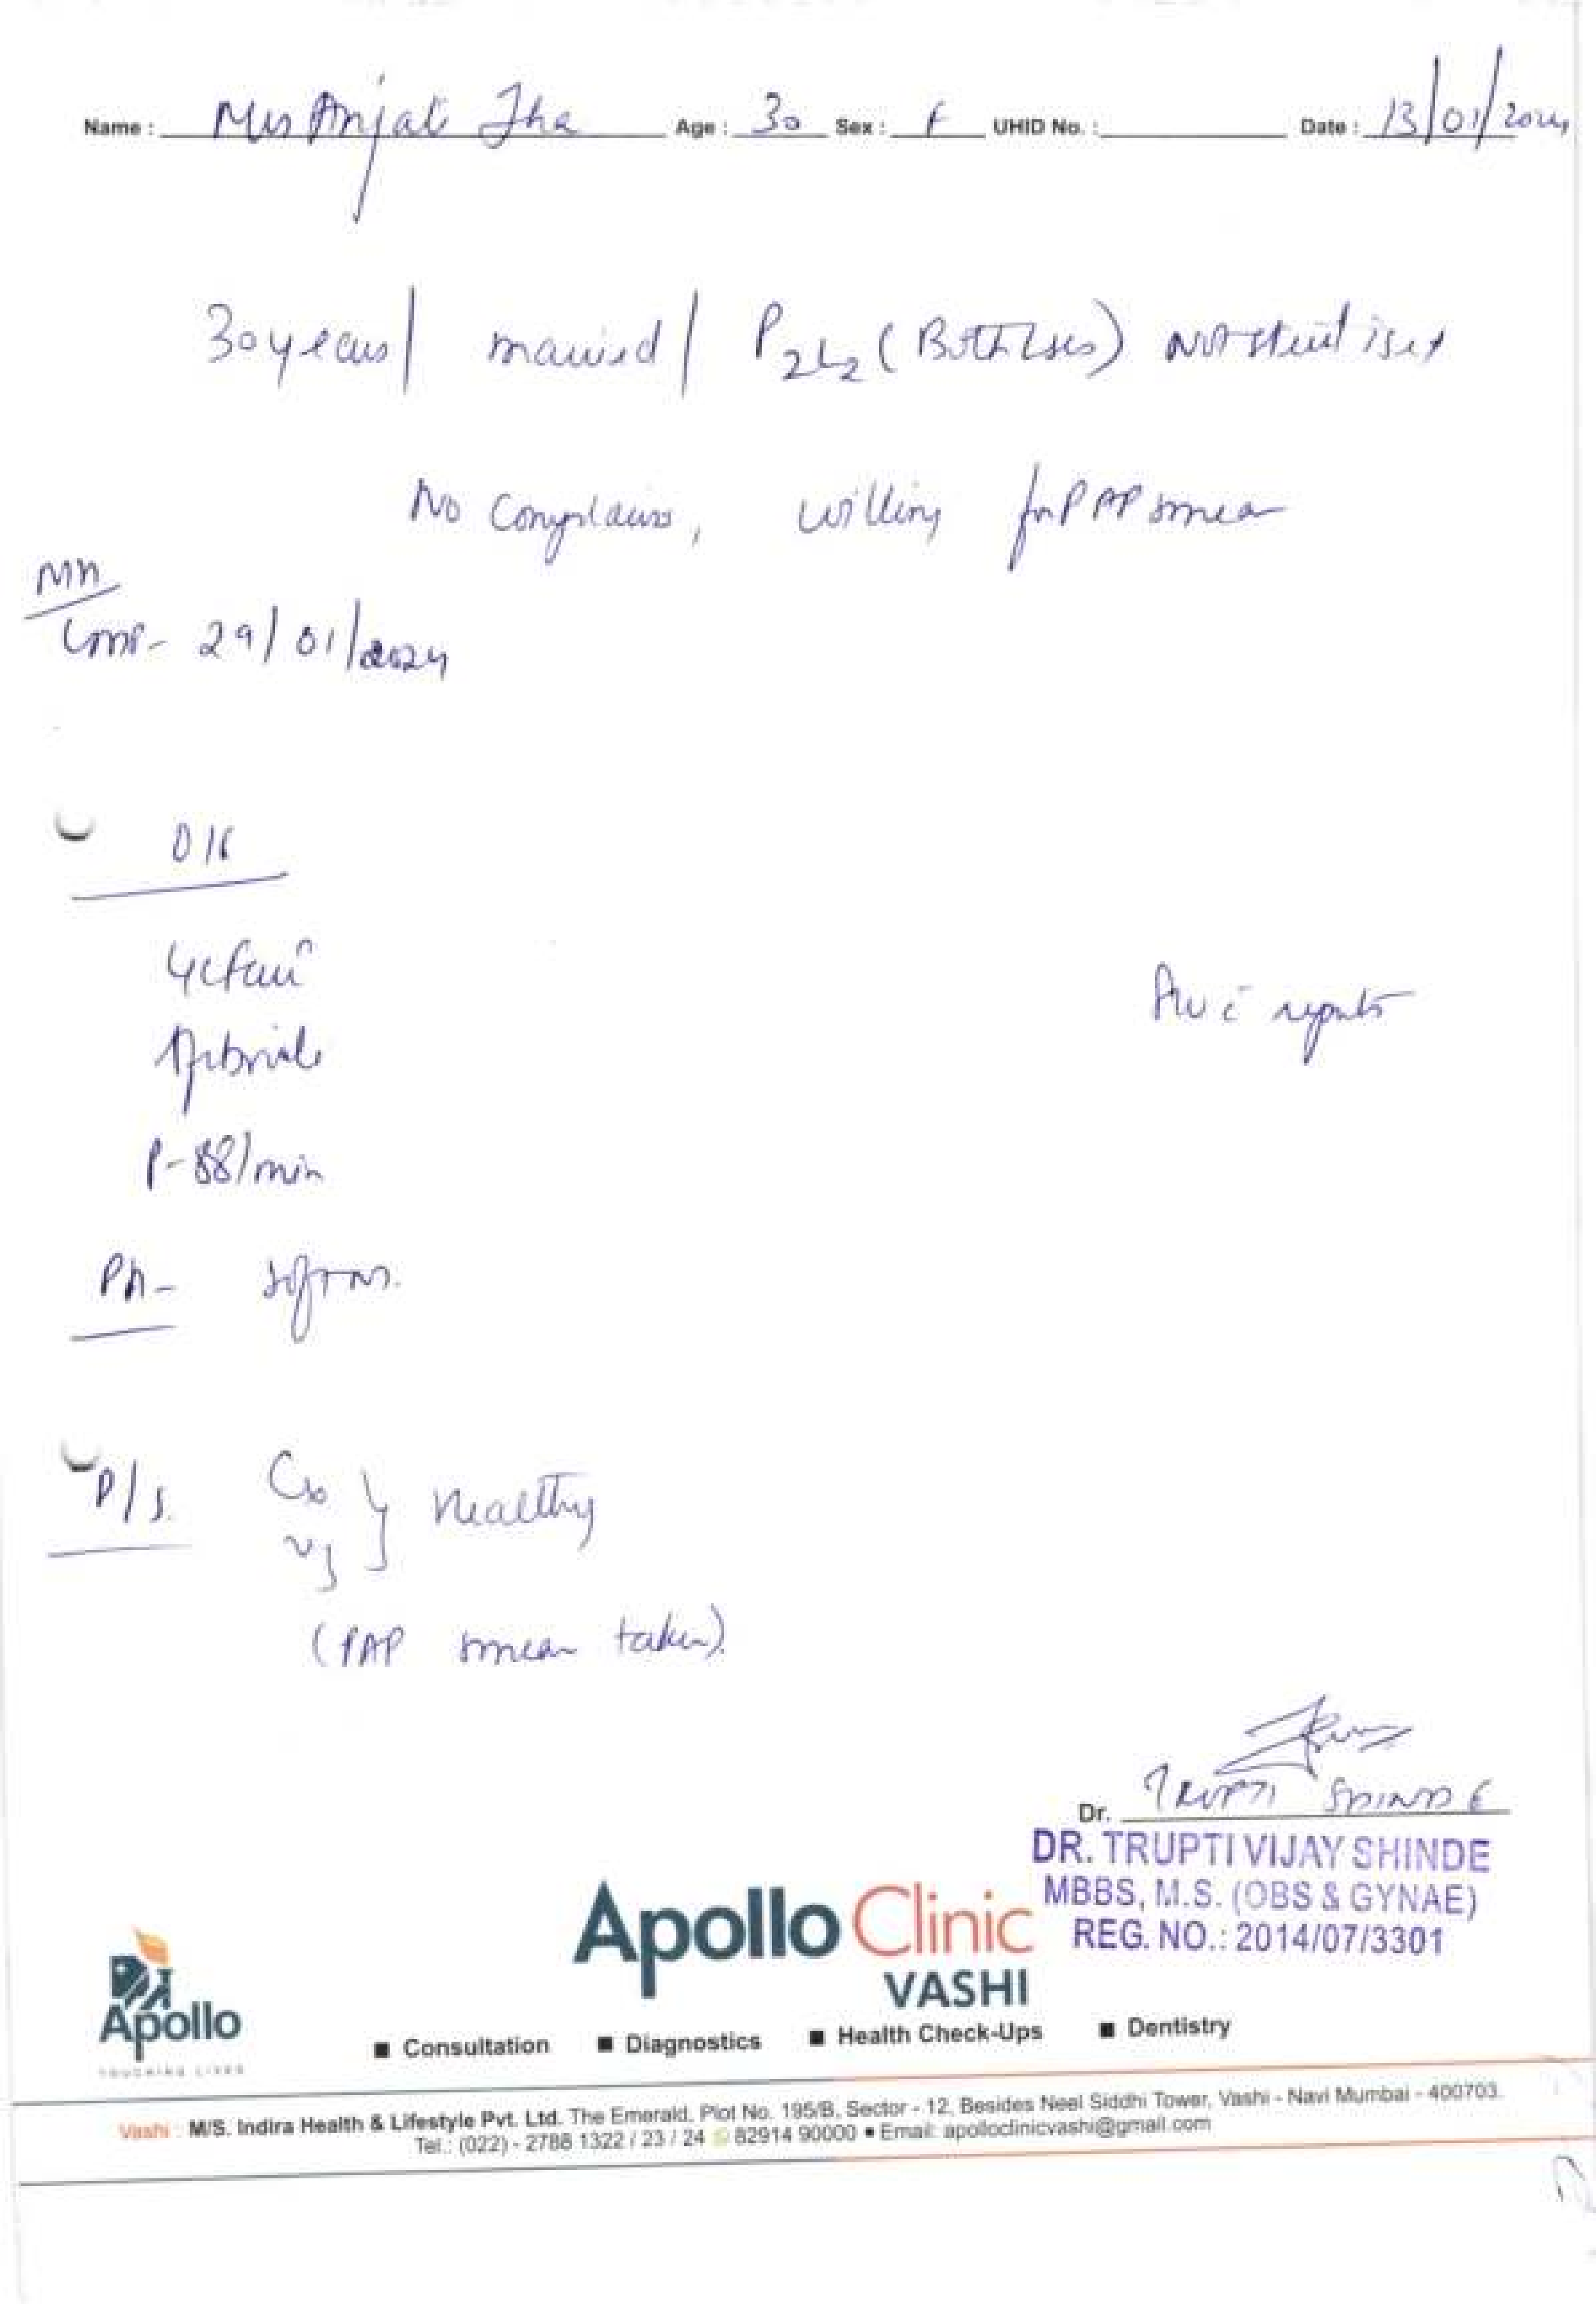 Name : Mrs Anjali Jha Age : 30 Sex : F UHID No. : Date : 13/01/2024
30 years / married / P2L2 (Both LSCS) Not sterilised
No Complains, willing for PAP smear
MH
LMP - 29/01/2024
O/E
GC fair
Afebrile
P - 88/min
Rv c reports
PA - soft
P/S. Cx } Healthy
Vg
(PAP smear taken).
Dr. TRUPTI SHINDE
DR. TRUPTI VIJAY SHINDE
MBBS, M.S. (OBS & GYNAE)
REG. NO.: 2014/07/3301
Apollo Clinic
VASHI
Apollo
TOUCHING LIVES
■ Consultation ■ Diagnostics ■ Health Check-Ups ■ Dentistry
Vashi : M/S. Indira Health & Lifestyle Pvt. Ltd. The Emerald, Plot No. 195/B, Sector - 12, Besides Neel Siddhi Tower, Vashi - Navi Mumbai - 400703.
Tel.: (022) - 2788 1322 / 23 / 24 82914 90000 • Email: apolloclinicvashi@gmail.com